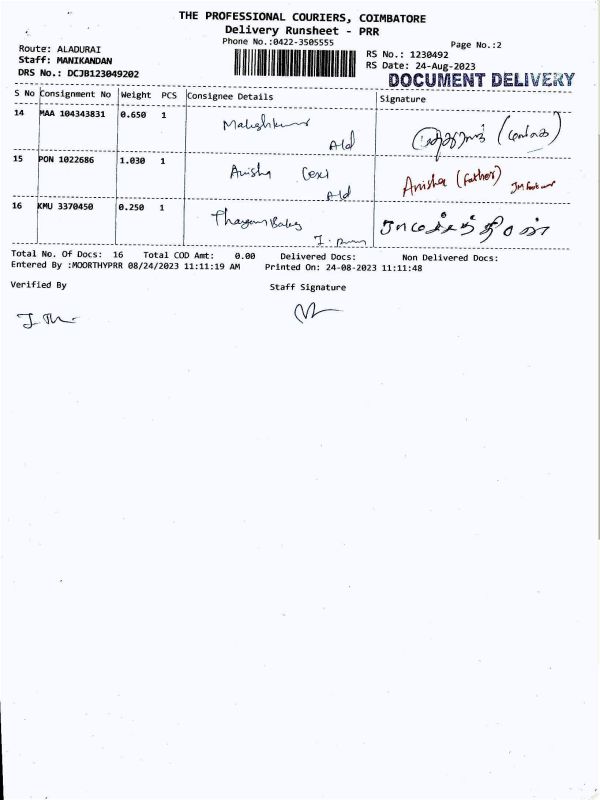 THE PROFESSIONAL COURIERS, COIMBATORE
Delivery Runsheet - PRR
Phone No.:0422-3505555
Page No.:2
Route: ALADURAI
Staff: MANIKANDAN
DRS No.: DCJB123049202
RS No.: 1230492
RS Date: 24-Aug-2023
DOCUMENT DELIVERY
S No Consignment No Weight PCS Consignee Details Signature
14 MAA 104343831 0.650 1 Maheshkumar
Ald
15 PON 1022686 1.030 1 Anisha Ald Anisha (Father)
16 KMU 3370450 0.250 1
Total No. Of Docs: 16 Total COD Amt: 0.00 Delivered Docs: Non Delivered Docs:
Entered By :MOORTHYPRR 08/24/2023 11:11:19 AM Printed On: 24-08-2023 11:11:48
Verified By Staff Signature